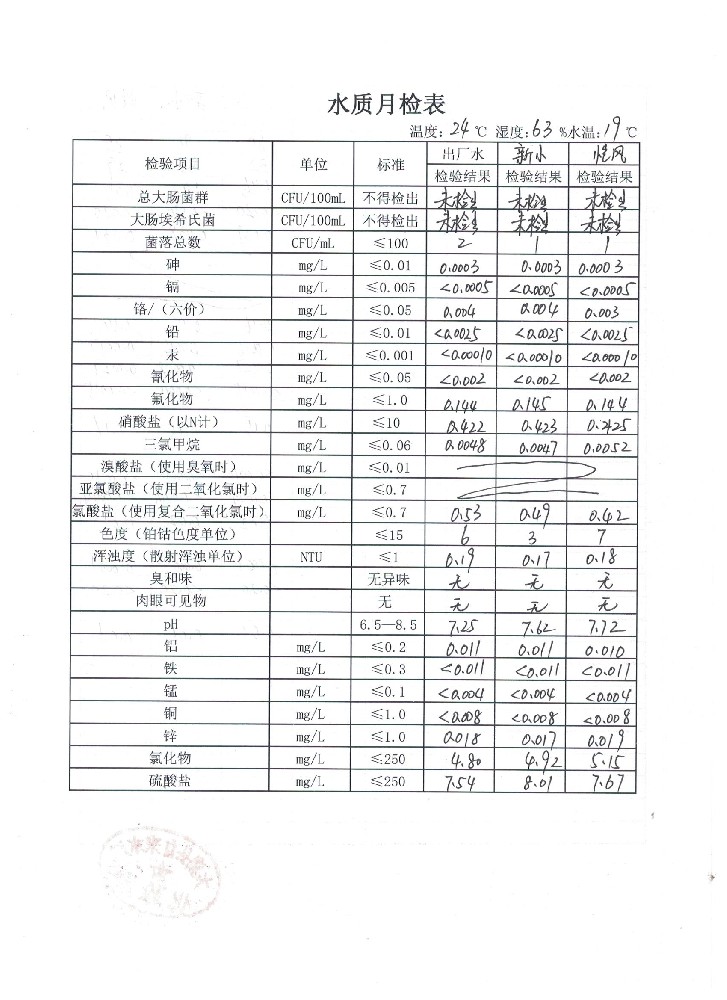 水质月检表
温度: 24 ℃ 湿度: 63 %水温: 19 ℃
检验项目 单位 标准 出厂水 新小 悦风
检验结果 检验结果 检验结果
总大肠菌群 CFU/100mL 不得检出 未检出 未检出 未检出
大肠埃希氏菌 CFU/100mL 不得检出 未检出 未检出 未检出
菌落总数 CFU/mL ≤100 2 1 1
砷 mg/L ≤0.01 0.0003 0.0003 0.0003
镉 mg/L ≤0.005 <0.0005 <0.0005 <0.0005
铬/(六价) mg/L ≤0.05 0.004 0.004 0.003
铅 mg/L ≤0.01 <0.0025 <0.0025 <0.0025
汞 mg/L ≤0.001 <0.00010 <0.00010 <0.00010
氰化物 mg/L ≤0.05 <0.002 <0.002 <0.002
氟化物 mg/L ≤1.0 0.144 0.145 0.144
硝酸盐(以N计) mg/L ≤10 0.422 0.423 0.425
三氯甲烷 mg/L ≤0.06 0.0048 0.0047 0.0052
溴酸盐(使用臭氧时) mg/L ≤0.01
亚氯酸盐(使用二氧化氯时) mg/L ≤0.7
氯酸盐(使用复合二氧化氯时) mg/L ≤0.7 0.53 0.49 0.42
色度(铂钴色度单位) ≤15 6 3 7
浑浊度(散射浑浊单位) NTU ≤1 0.19 0.17 0.18
臭和味 无异味 无 无 无
肉眼可见物 无 无 无 无
pH 6.5—8.5 7.25 7.62 7.72
铝 mg/L ≤0.2 0.011 0.011 0.010
铁 mg/L ≤0.3 <0.011 <0.011 <0.011
锰 mg/L ≤0.1 <0.004 <0.004 <0.004
铜 mg/L ≤1.0 <0.008 <0.008 <0.008
锌 mg/L ≤1.0 0.018 0.017 0.019
氯化物 mg/L ≤250 4.80 4.92 5.15
硫酸盐 mg/L ≤250 7.54 8.01 7.67